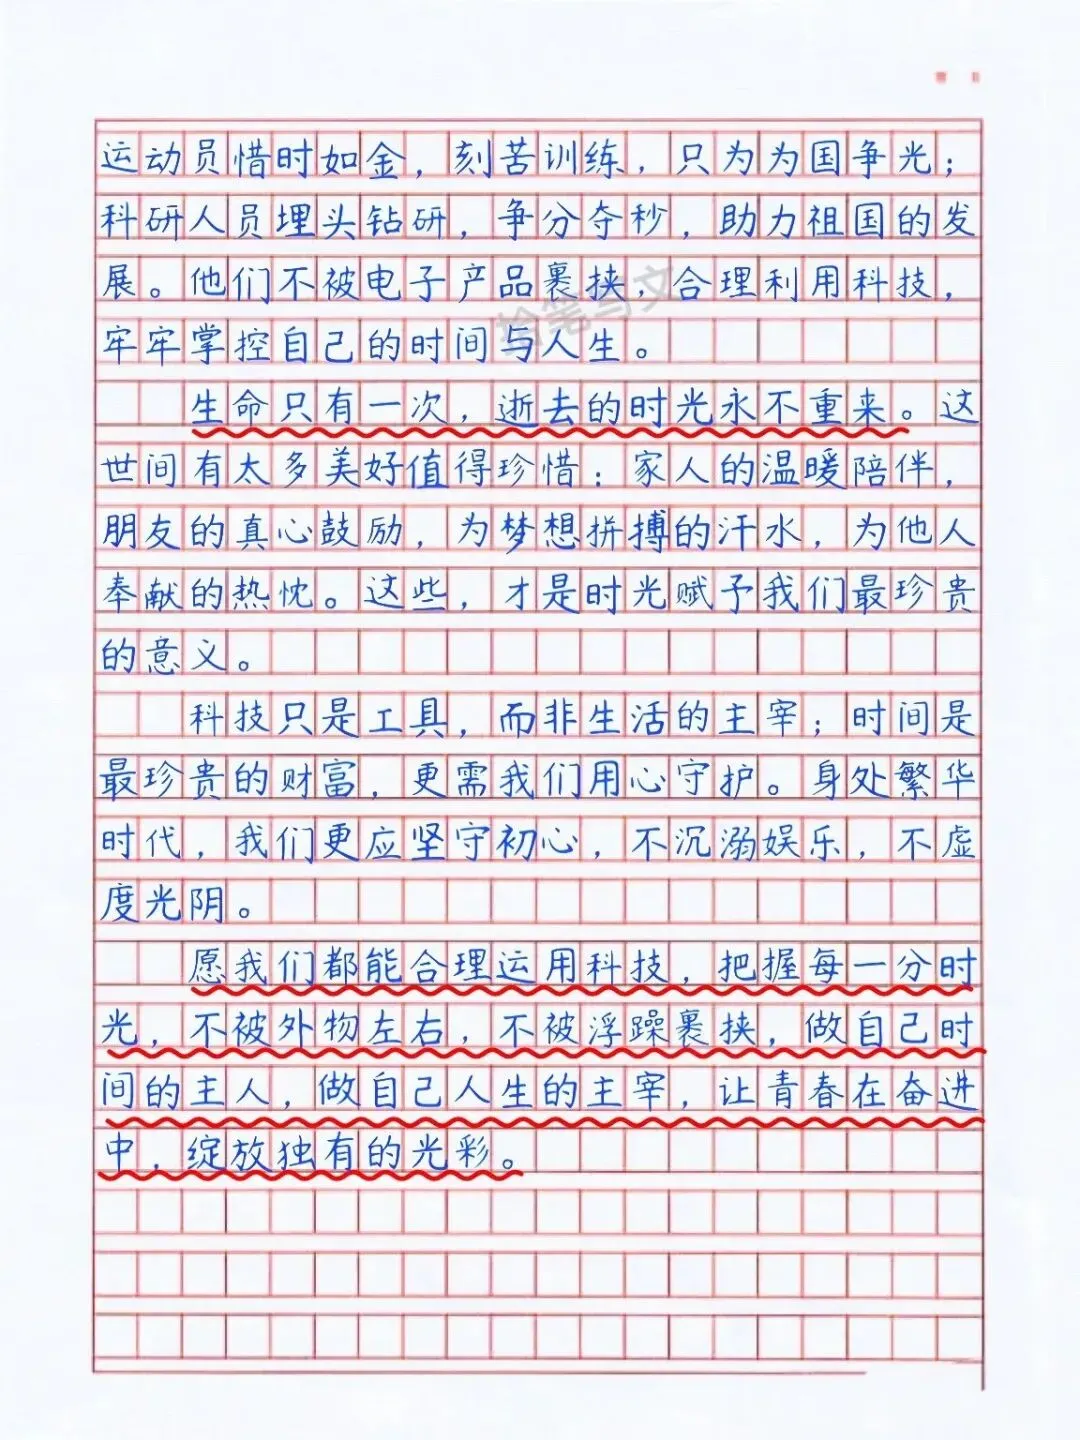 运动员惜时如金，刻苦训练，只为为国争光；
科研人员埋头钻研，争分夺秒，助力祖国的发
展。他们不被电子产品裹挟，合理利用科技，
牢牢掌控自己的时间与人生。
生命只有一次，逝去的时光永不重来。这
世间有太多美好值得珍惜：家人的温暖陪伴，
朋友的真心鼓励，为梦想拼搏的汗水，为他人
奉献的热忱。这些，才是时光赋予我们最珍贵
的意义。
科技只是工具，而非生活的主宰；时间是
最珍贵的财富，更需我们用心守护。身处繁华
时代，我们更应坚守初心，不沉溺娱乐，不虚
度光阴。
愿我们都能合理运用科技，把握每一分时
光，不被外物左右，不被浮躁裹挟，做自己时
间的主人，做自己人生的主宰，让青春在奋进
中，绽放独有的光彩。